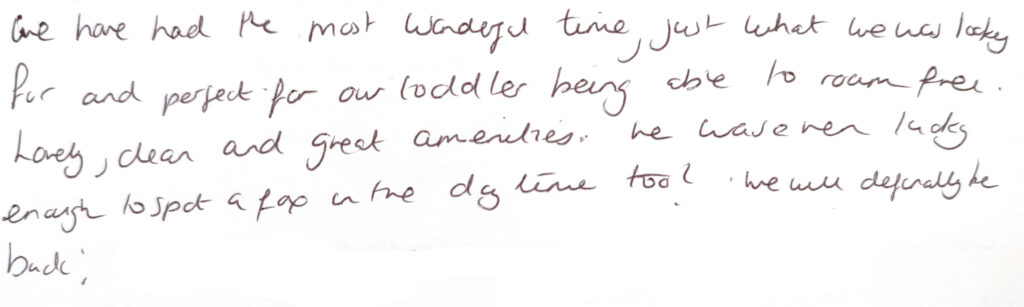 We have had the most wonderful time, just what we was looking
for and perfect for our toddler being able to roam free.
Lovely, clean and great amenities. We was even lucky
enough to spot a fox in the day time too! We will definitely be
back!